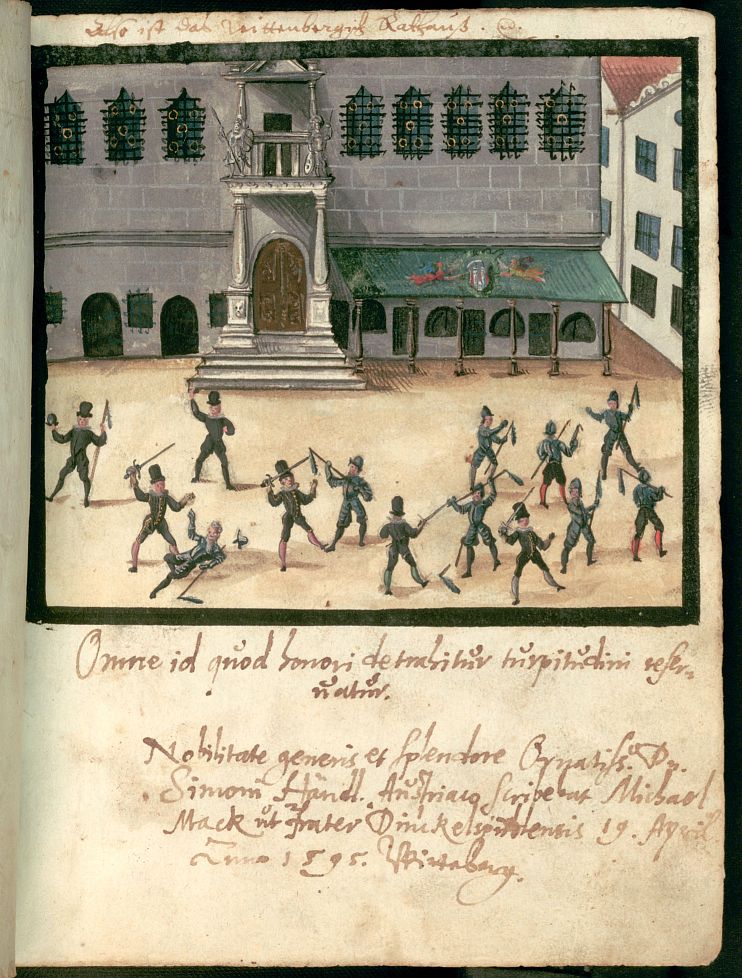 Also ist das Wittenbergisch Rathauß.
Omne id quod honori detrahitur turpitudini reser-
uatur.
Nobilitate generis et splendore Ornatiss. Dn.
Simoni Händl. Austriaco scribebat Michael
Mack ut frater Dinckelspulensis 19. April
Anno 1595. Witteberg.